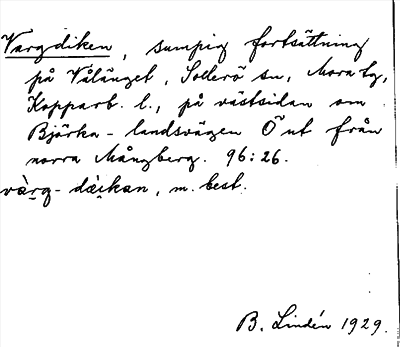 Vargdiken, sumpig fortsättning
på Vålänget, Sollerö sn, Mora tg,
Kopparb. l., på västsidan om
Björka-landsvägen Ö ut från
norra Mångberg. 96:26.
vàrg-dàikan, m. best.
B. Lindén 1929.